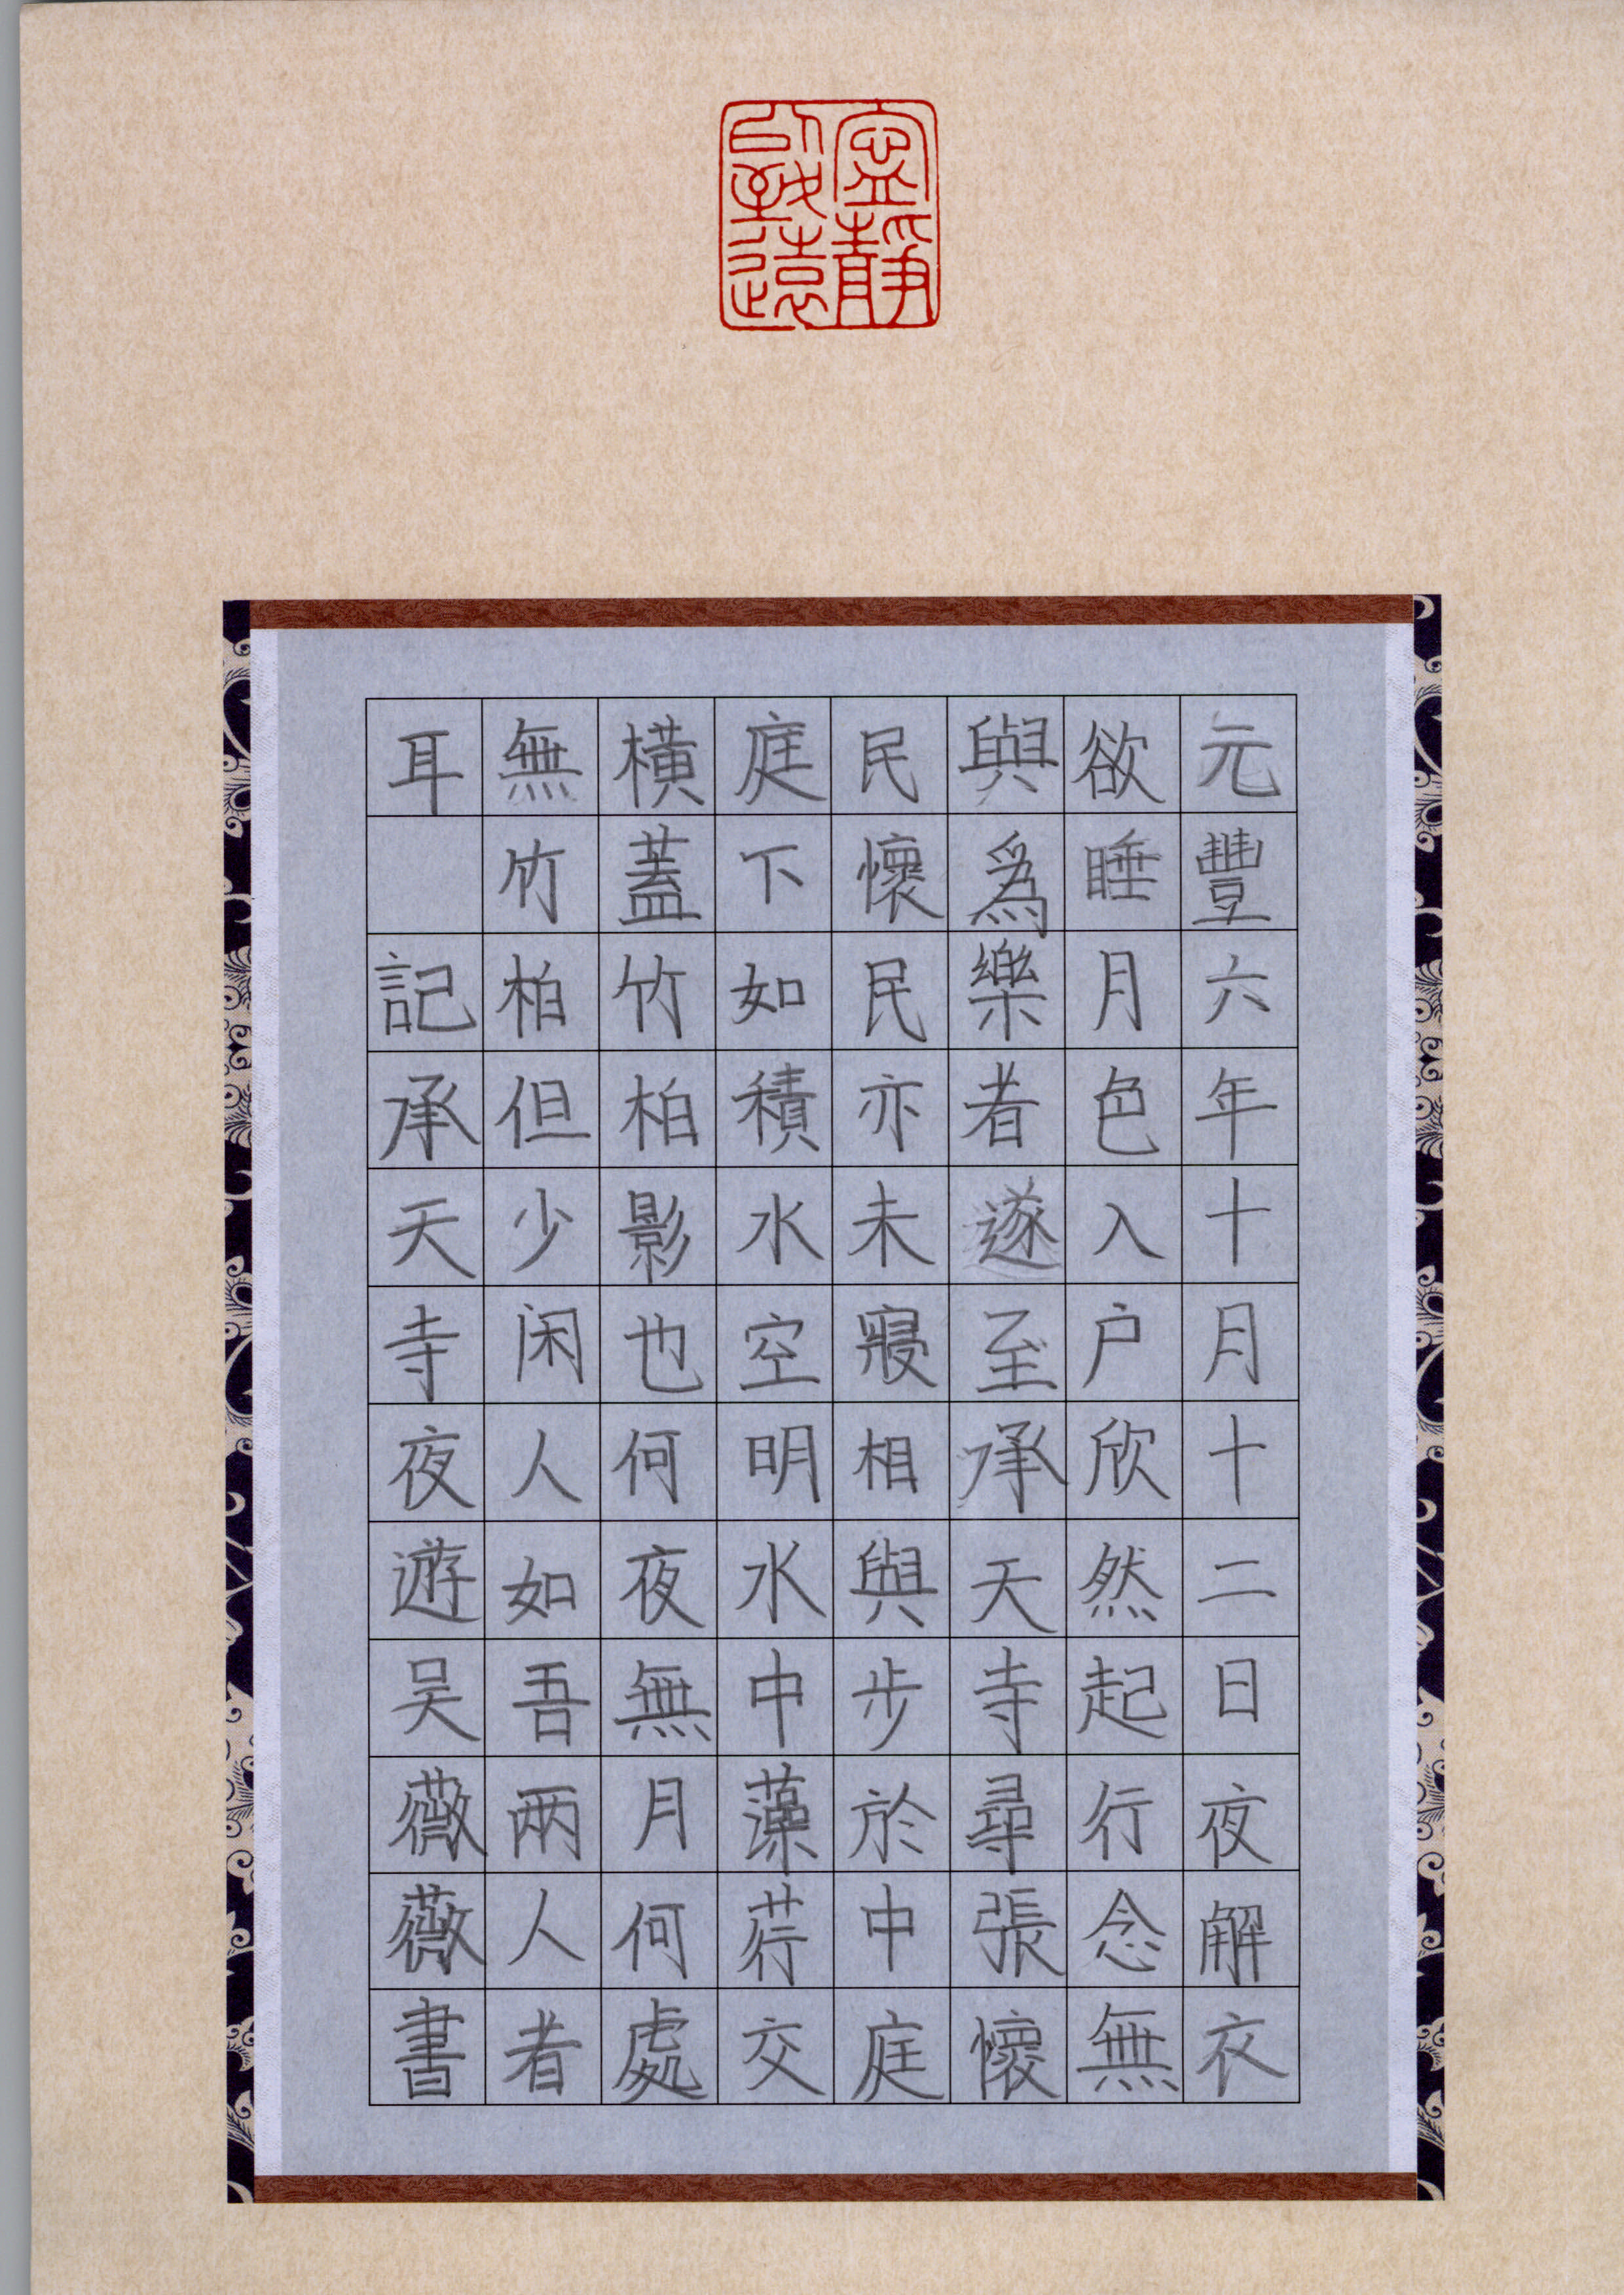 寧靜
致遠
元豐六年十月十二日夜解衣
欲睡月色入户欣然起行念無
與爲樂者遂至承天寺尋張懷
民懷民亦未寢相與步於中庭
庭下如積水空明水中藻荇交
橫蓋竹柏影也何夜無月何處
無竹柏但少闲人如吾两人者
耳 記承天寺夜遊吴薇薇書